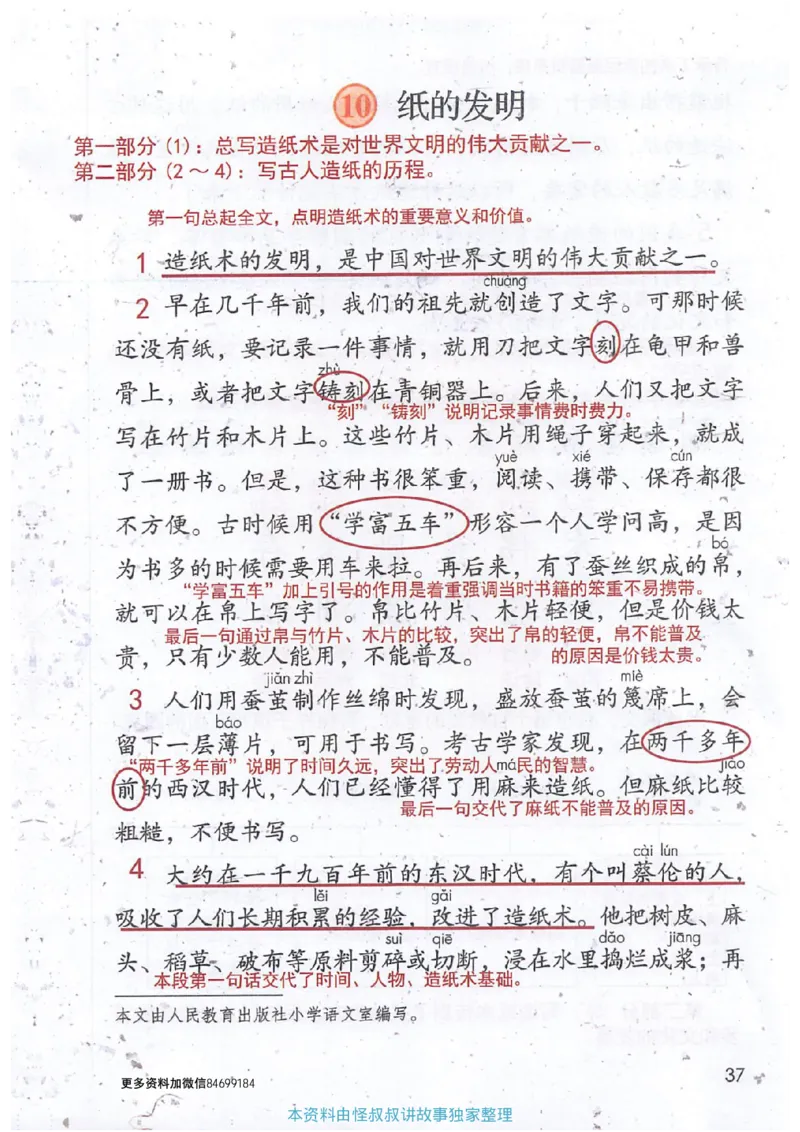 10 纸的发明
第一部分（1）：总写造纸术是对世界文明的伟大贡献之一。
第二部分（2～4）：写古人造纸的历程。
第一句总起全文，点明造纸术的重要意义和价值。
1 造纸术的发明，是中国对世界文明的伟大贡献之一。
chuàng
2 早在几千年前，我们的祖先就创造了文字。可那时候
还没有纸，要记录一件事情，就用刀把文字刻在龟甲和兽
zhù
骨上，或者把文字铸刻在青铜器上。后来，人们又把文字
“刻”“铸刻”说明记录事情费时费力。
写在竹片和木片上。这些竹片、木片用绳子穿起来，就成
yuè xié cún
了一册书。但是，这种书很笨重，阅读、携带、保存都很
不方便。古时候用“学富五车”形容一个人学问高，是因
bó
为书多的时候需要用车来拉。再后来，有了蚕丝织成的帛，
“学富五车”加上引号的作用是着重强调当时书籍的笨重不易携带。
就可以在帛上写字了。帛比竹片、木片轻便，但是价钱太
最后一句通过帛与竹片、木片的比较，突出了帛的轻便，帛不能普及
贵，只有少数人能用，不能普及。 的原因是价钱太贵。
jiǎn zhì miè
3 人们用蚕茧制作丝绵时发现，盛放蚕茧的篾席上，会
báo
留下一层薄片，可用于书写。考古学家发现，在两千多年
“两千多年前”说明了时间久远，突出了劳动人má民的智慧。 jiào
前的西汉时代，人们已经懂得了用麻来造纸。但麻纸比较
最后一句交代了麻纸不能普及的原因。
粗糙，不便书写。
cài lún
4 大约在一千九百年前的东汉时代，有个叫蔡伦的人，
lěi gǎi
吸收了人们长期积累的经验，改进了造纸术。他把树皮、麻
suì qiē dǎo jiāng
头、稻草、破布等原料剪碎或切断，浸在水里捣烂成浆；再
本段第一句话交代了时间、人物、造纸术基础。
本文由人民教育出版社小学语文室编写。
37
更多资料加微信84699184
本资料由怪叔叔讲故事独家整理